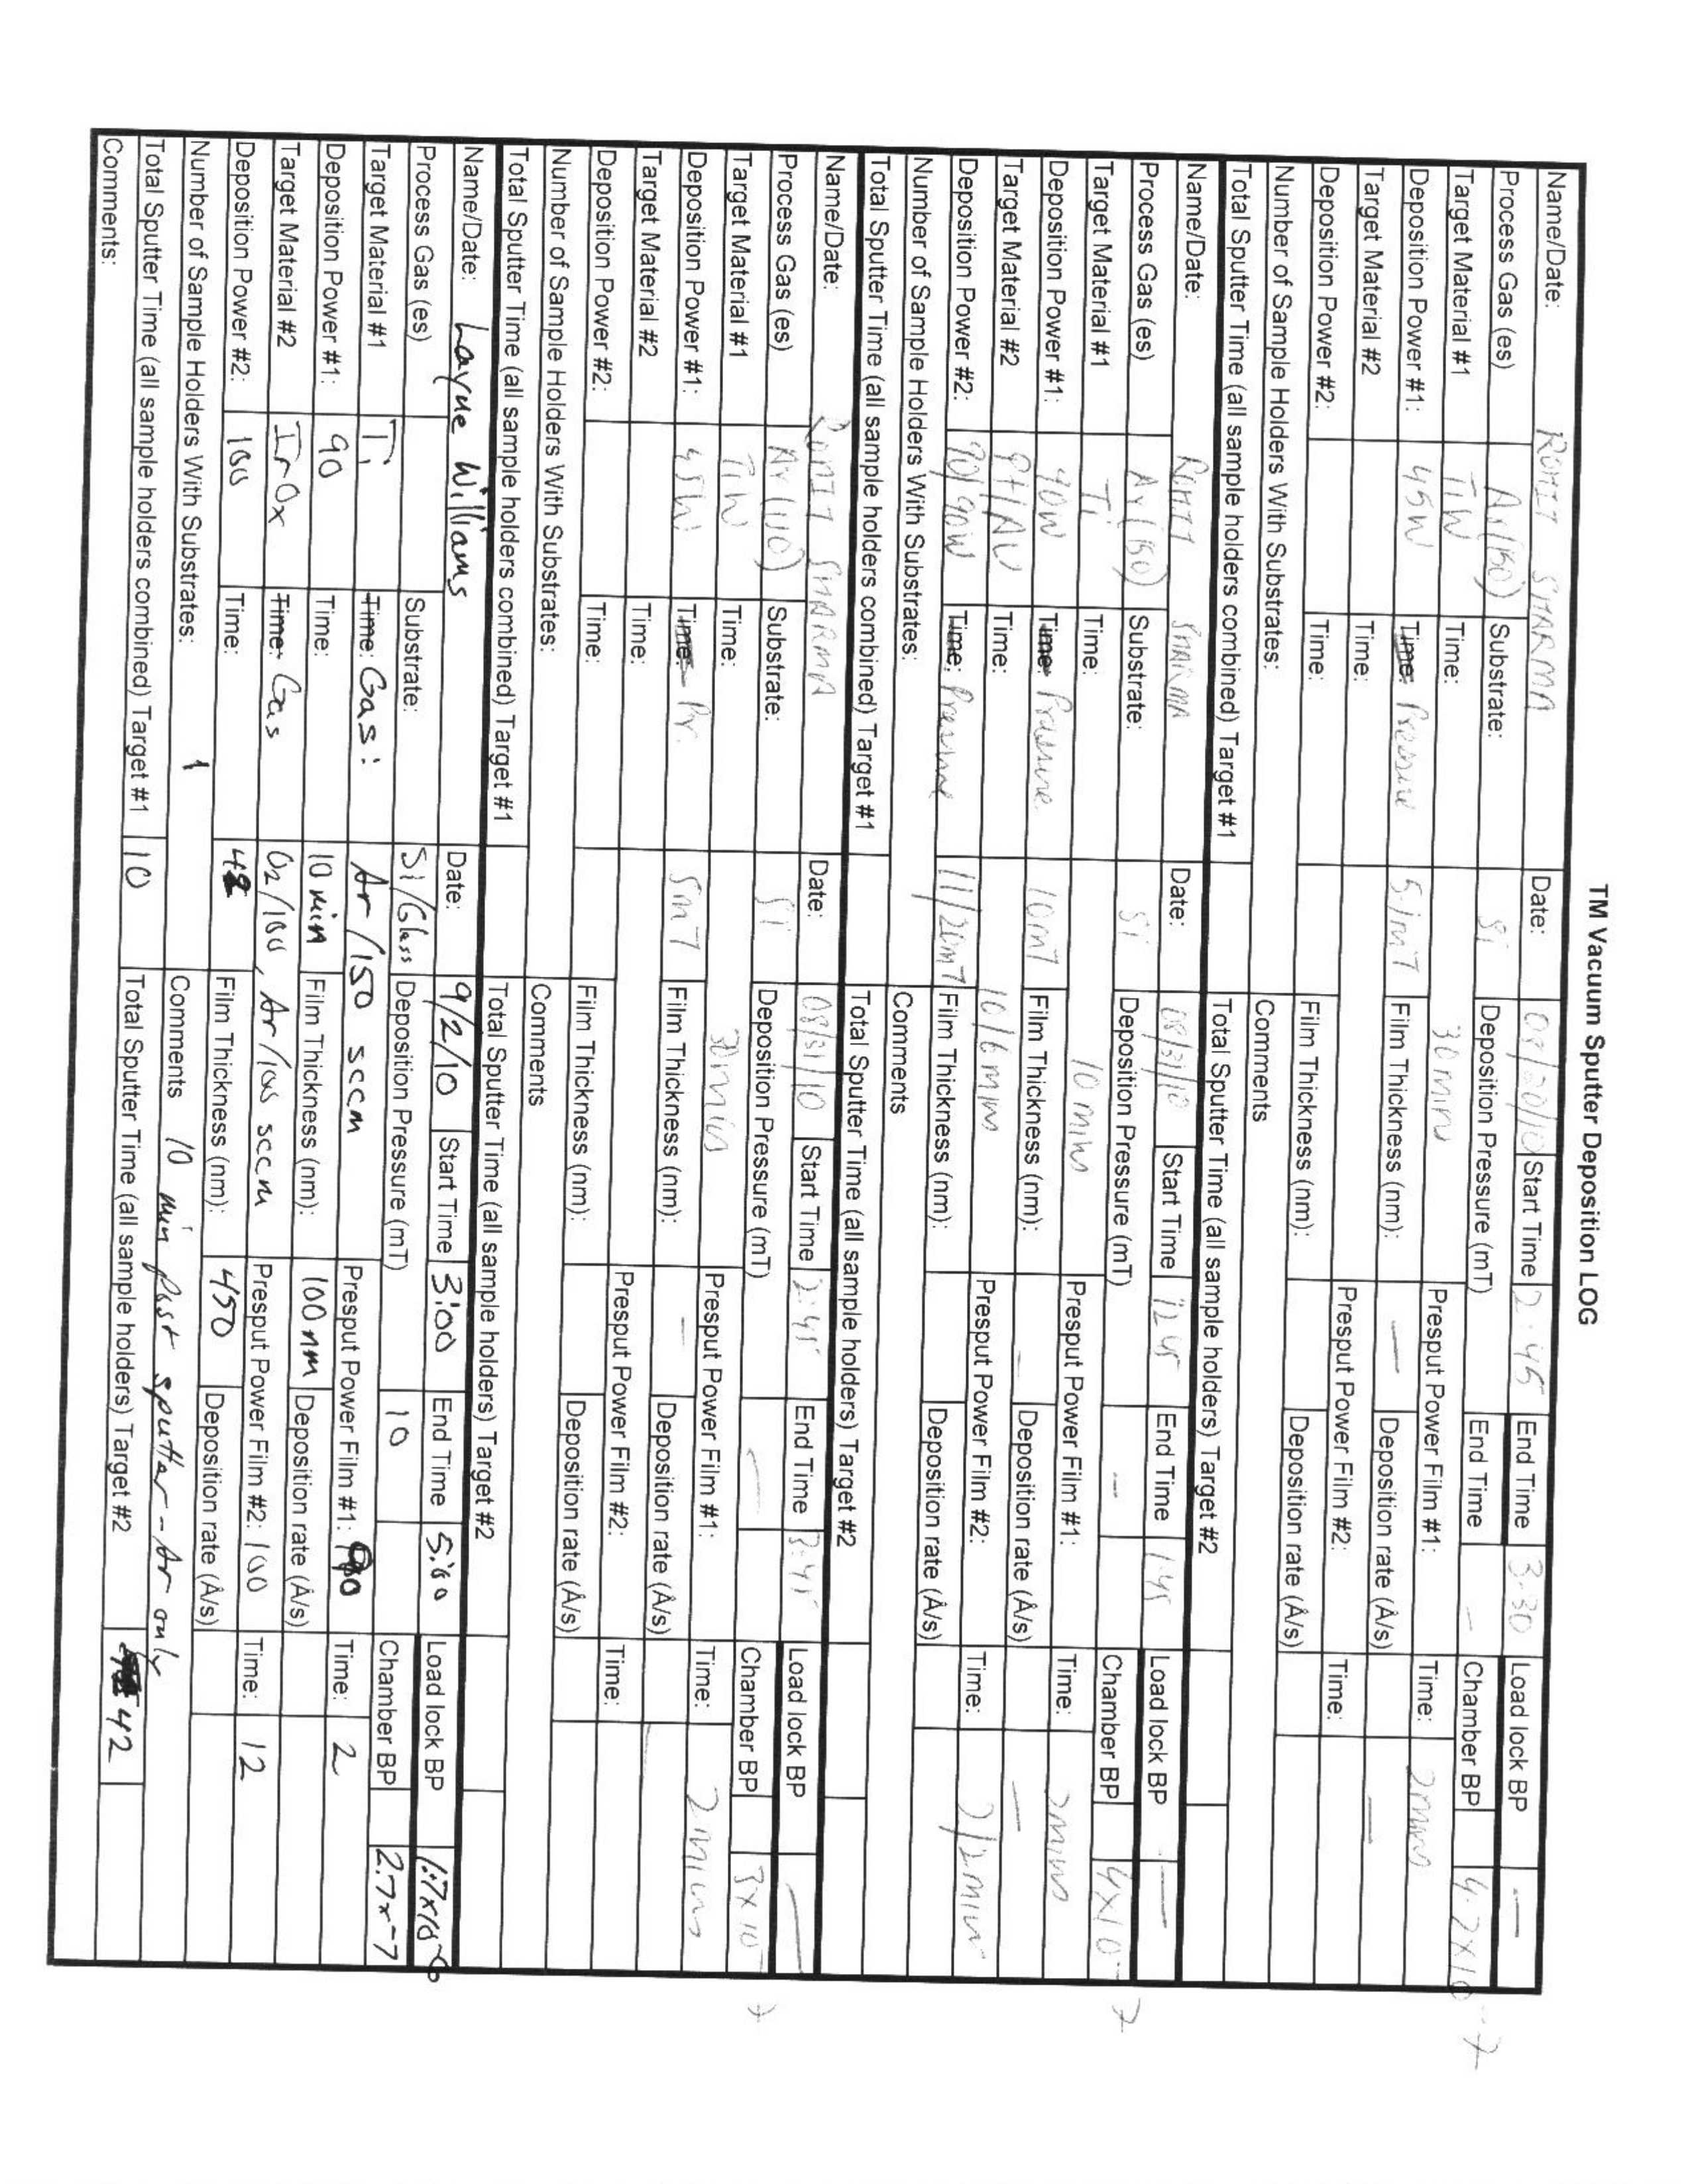 TM Vacuum Sputter Deposition LOG
Name/Date: ROHIT SHARMA Date: 08/30/10 Start Time 2:45 End Time 3:30 Load lock BP —
Process Gas (es) Ar(150) Substrate: Si Deposition Pressure (mT) End Time — Chamber BP 4.7x10-7
Target Material #1 TiW Time: 30 mins Presput Power Film #1: Time: 2 mins
Deposition Power #1: 45W Time: Pressure 5.1mT Film Thickness (nm): — Deposition rate (Å/s) —
Target Material #2 Time: Presput Power Film #2: Time:
Deposition Power #2: Time: Film Thickness (nm): Deposition rate (Å/s)
Number of Sample Holders With Substrates: Comments
Total Sputter Time (all sample holders combined) Target #1 Total Sputter Time (all sample holders) Target #2
Name/Date: ROHIT SHARMA Date: 08/31/10 Start Time 12 45 End Time 1 45 Load lock BP —
Process Gas (es) Ar(150) Substrate: Si Deposition Pressure (mT) — Chamber BP 4x10-7
Target Material #1 Ti Time: 10 mins Presput Power Film #1: Time: 2 mins
Deposition Power #1: 90W Time: Pressure 10mT Film Thickness (nm): — Deposition rate (Å/s) —
Target Material #2 Pt/Au Time: 10/6 mins Presput Power Film #2: Time: 2/2 min
Deposition Power #2: 90/90W Time: Pressure 11/20mT Film Thickness (nm): Deposition rate (Å/s)
Number of Sample Holders With Substrates: Comments
Total Sputter Time (all sample holders combined) Target #1 Total Sputter Time (all sample holders) Target #2
Name/Date: ROHIT SHARMA Date: 08/31/10 Start Time 2:45 End Time 3:45 Load lock BP —
Process Gas (es) Ar(110) Substrate: Si Deposition Pressure (mT) — Chamber BP 3x10-7
Target Material #1 TiW Time: 30 mins Presput Power Film #1: Time: 2 mins
Deposition Power #1: 45W Time: Pr. 5mT Film Thickness (nm): — Deposition rate (Å/s) —
Target Material #2 Time: Presput Power Film #2: Time:
Deposition Power #2: Time: Film Thickness (nm): Deposition rate (Å/s)
Number of Sample Holders With Substrates: Comments
Total Sputter Time (all sample holders combined) Target #1 Total Sputter Time (all sample holders) Target #2
Name/Date: Layne Williams Date: 9/2/10 Start Time 3:00 End Time 5:00 Load lock BP
Process Gas (es) Substrate: Si/Glass Deposition Pressure (mT) 10 Chamber BP 2.7x-7
Target Material #1 Ti Time: Gas: Ar/150 sccm Presput Power Film #1: Time: 2
Deposition Power #1: 90 Time: 10 min Film Thickness (nm): 100 nm Deposition rate (Å/s)
Target Material #2 IrOx Time: Gas O2/100, Ar/100 sccm Presput Power Film #2: 100 Time: 12
Deposition Power #2: 100 Time: Film Thickness (nm): 450 Deposition rate (Å/s)
Number of Sample Holders With Substrates: 1 Comments 10 min post sputter - Ar only
Total Sputter Time (all sample holders combined) Target #1 10 Total Sputter Time (all sample holders) Target #2 42
Comments: